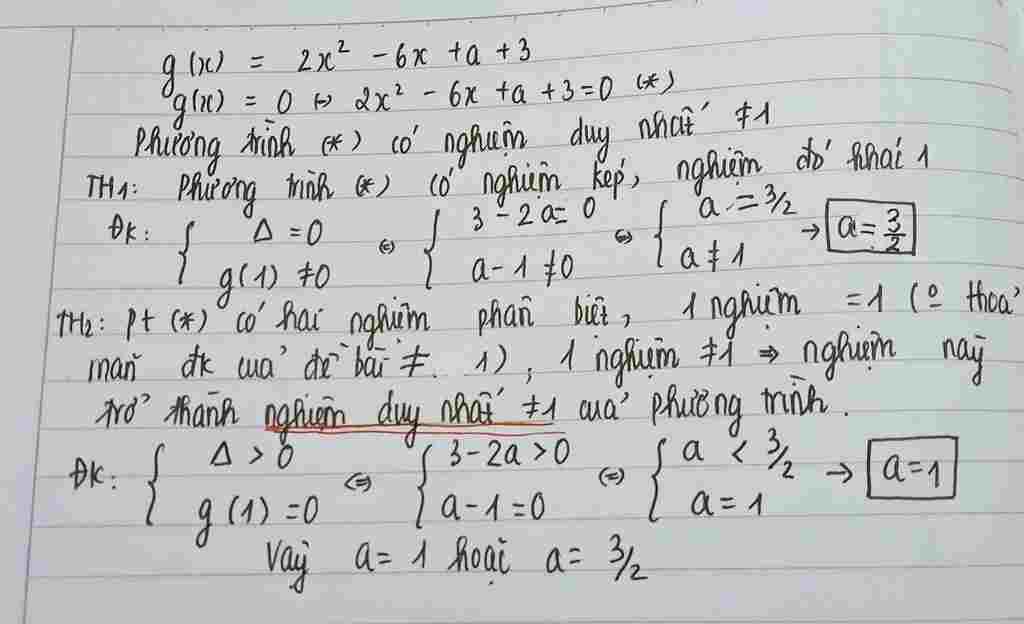 g(x) = 2x² - 6x + a + 3
g(x) = 0 ⇔ 2x² - 6x + a + 3 = 0 (*)
Phương trình (*) có nghiệm duy nhất ≠ 1
TH1: Phương trình (*) có nghiệm kép, nghiệm đó khác 1
ĐK: { Δ = 0 ; g(1) ≠ 0 ⇔ { 3 - 2a = 0 ; a - 1 ≠ 0 ⇔ { a = 3/2 ; a ≠ 1 → a = 3/2
TH2: pt (*) có hai nghiệm phân biệt, 1 nghiệm = 1 (o thoả
mãn đk của đề bài ≠ 1), 1 nghiệm ≠ 1 ⇒ nghiệm này
trở thành nghiệm duy nhất ≠ 1 của phương trình.
ĐK: { Δ > 0 ; g(1) = 0 ⇔ { 3 - 2a > 0 ; a - 1 = 0 ⇔ { a < 3/2 ; a = 1 → a = 1
Vậy a = 1 hoặc a = 3/2